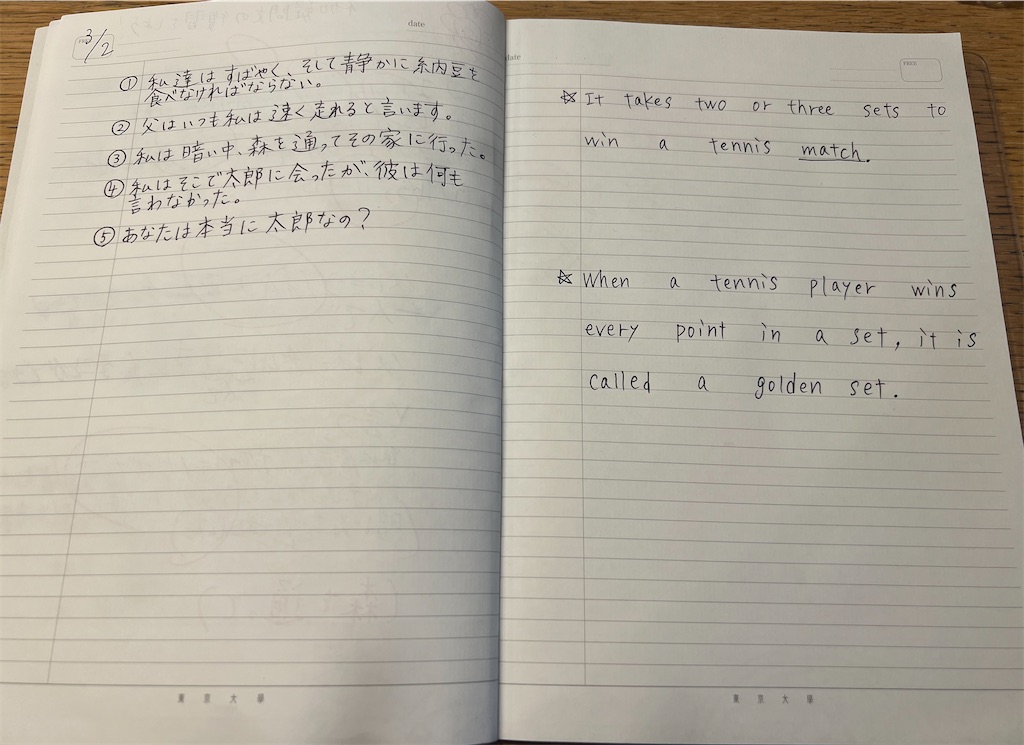 3/2
① 私達は すばやく、そして静かに納豆を
食べなければならない。
② 父はいつも私は速く走れると言います。
③ 私は暗い中、森を通ってその家に行った。
④ 私はそこで太郎に会ったが、彼は何も
言わなかった。
⑤ あなたは本当に太郎なの？
東京大學
date
date
FREE
☆ It takes two or three sets to
win a tennis match.
☆ When a tennis player wins
every point in a set, it is
called a golden set.
東京大學